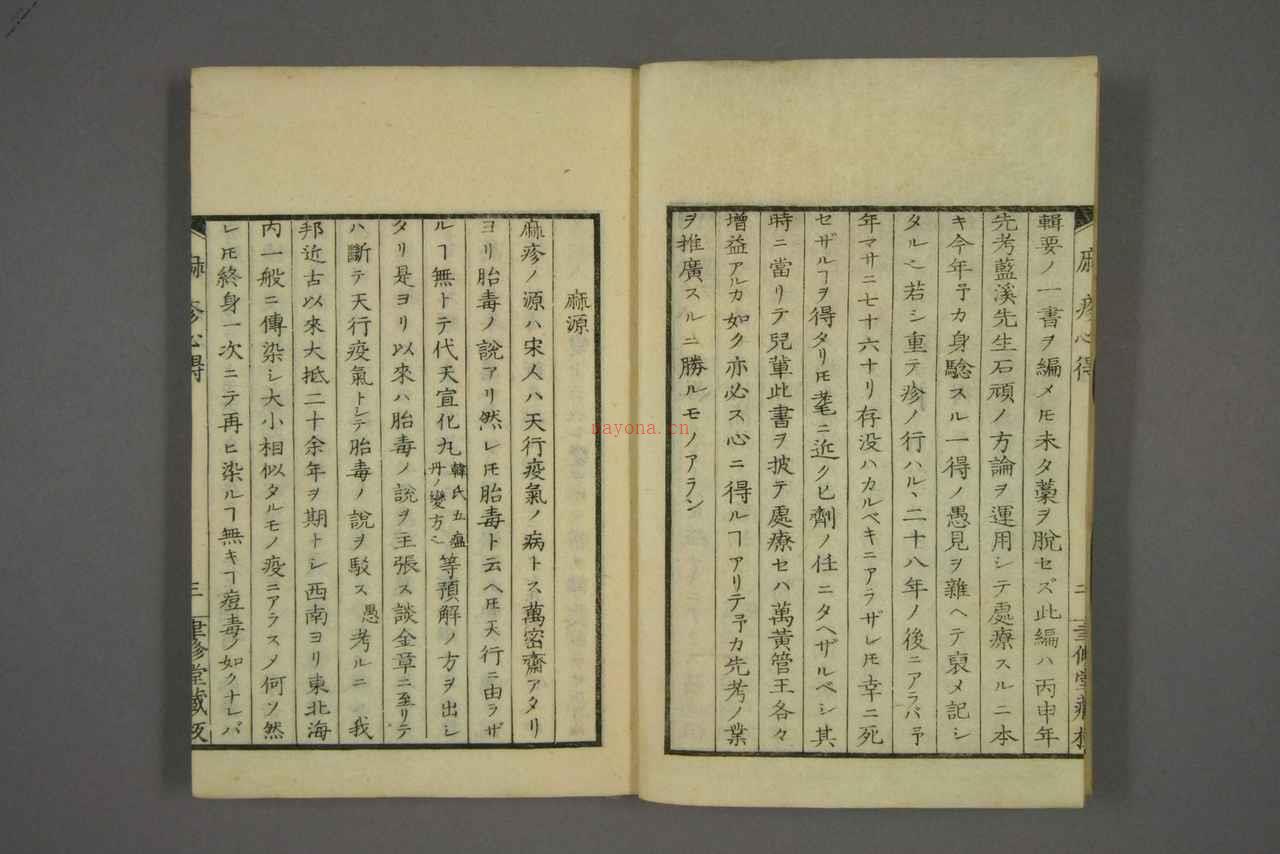 輯要ノ一書ヲ編メㇳモ未タ藁ヲ脫セズ此編ハ丙申年
先考藍溪先生石頑ノ方論ヲ運用シテ處療スルニ本
キ今年予カ身驗スル一得ノ愚見ヲ雜ヘテ裒メ記シ
タル也若シ重テ疹ノ行ハルヽ二十八年ノ後ニアラバ予
年マサニ七十六ナリ存没ハカルベキニアラザレ𪜈幸ニ死
セザルヿヲ得タリ𪜈耄ニ近ク匕劑ノ任ニタヘザルベシ其
時ニ當リテ兒輩此書ヲ披テ處療セハ萬黃管王各々
增益アルカ如ク亦必ス心ニ得ルヿアリテ予カ先考ノ業
ヲ推廣スルニ勝ルモノアラン
麻疹心得
二
麻源
麻疹ノ源ハ宋人ハ天行疫氣ノ病トス萬密齋アタリ
ヨリ胎毒ノ說アリ然レ𪜈胎毒ト云ヘ𪜈天行ニ由ラザ
ルヿ無トテ代天宣化丸韓氏五瘟丹ノ變方也等預解ノ方ヲ出シ
タリ是ヨリ以來ハ胎毒ノ說ヲ主張ス談金章ニ至リテ
ハ斷テ天行疫氣トシテ胎毒ノ說ヲ駁ス愚考ルニ我
邦近古以來大抵二十余年ヲ期トシ西南ヨリ東北海
內一般ニ傳染シ大小相似タルモノ疫ニアラスメ何ソ然
レ𪜈終身一次ニテ再ヒ染ルヿ無キヿ痘毒ノ如クナレバ
麻疹心得
三
聿修堂藏版
nayona.cn